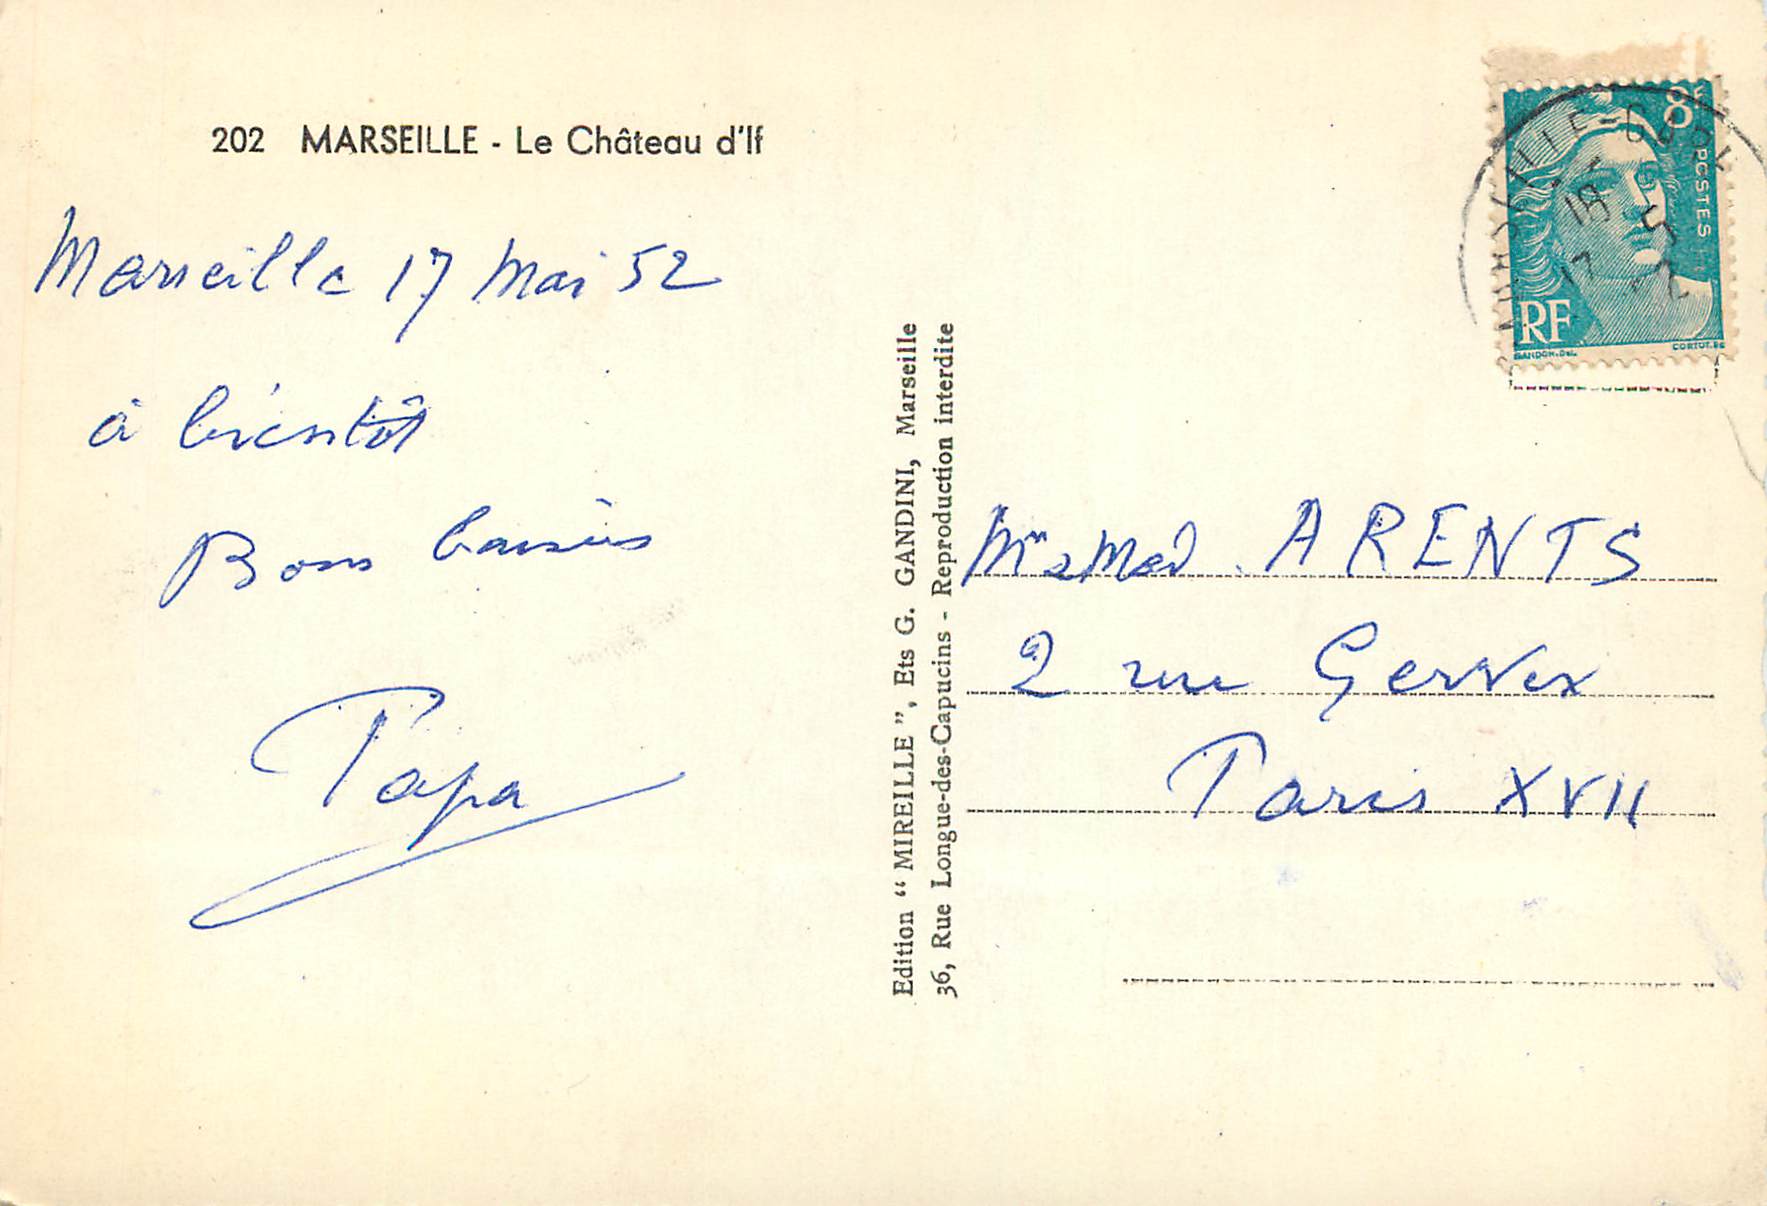 202 MARSEILLE - Le Château d'If
Marseille 17 Mai 52
à bientôt
Bons baisers
Papa
Edition “ MIREILLE ”, Ets G. GANDINI, Marseille
36, Rue Longue-des-Capucins - Reproduction interdite
8F
POSTES
RF
GANDON.Del.
CORTOT.Sc
MARSEILLE-GARE
18
17 - 5
Mr & Mad ARENTS
2 rue Gervex
Paris XVII